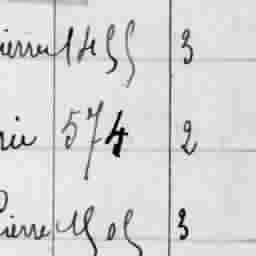 ierre 1455 3
rie 574 2
Pierre 3